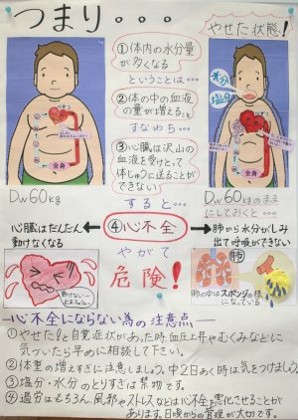 つまり・・・
やせた状態!
①体内の水分量
が多くなる
ということは…
②体の中の血液
の量が増えること
すなわち…
③心臓は沢山の
血液を受けとって
体じゅうに送ることが
できない
すると…
水分
塩分
全身
全身
Dw60kg
Dw60kgのまま
にしておくと…
心臓はだんだん
動けなくなる
④心不全
肺から水分がしみ
出て呼吸ができない
やがて
危険!
肺
肺の中はスポンジの様に
なっている
心不全にならない為の注意点
①やせたりと自覚症状があった時、血圧上昇やむくみなどに
気づいたら早めに相談して下さい。
②体重の増えすぎに注意しましょう。中2日あく時は気をつけましょう。
③塩分・水分のとりすぎは禁物です。
④過労はもちろん、風邪やストレスなどは心不全を悪化させることが
あります。日頃からの管理が大切です。